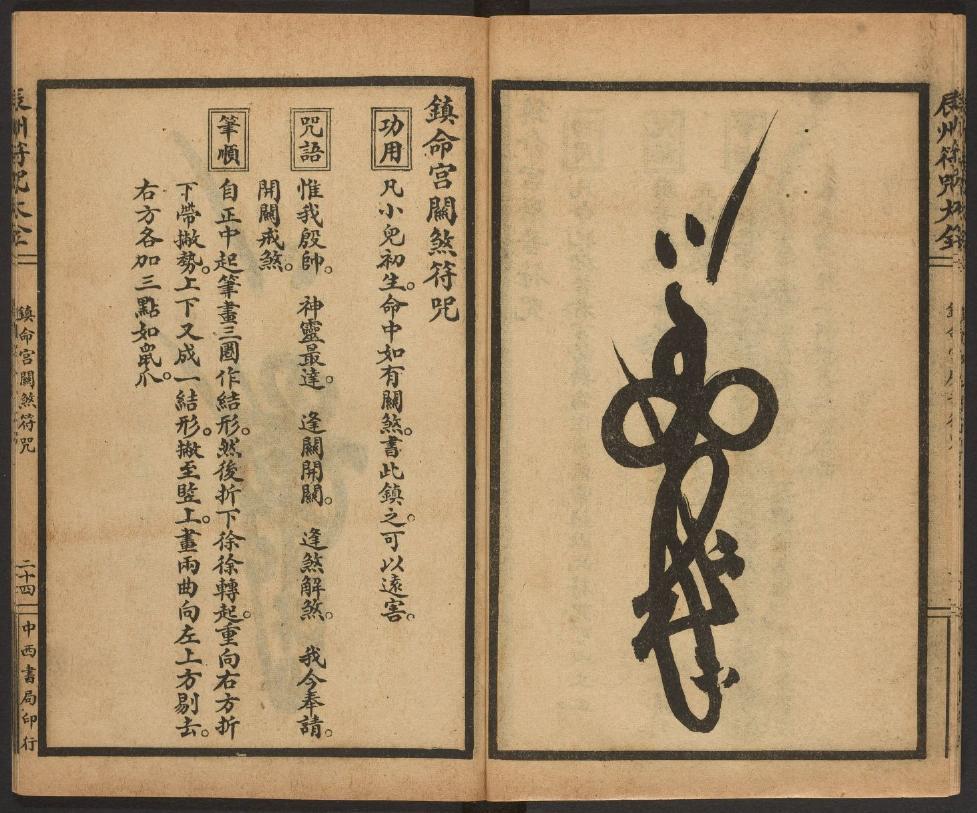 辰州符咒大全
鎮命宮關煞符咒
功用
凡小兒初生。命中如有關煞。書此鎮之。可以遠害。
咒語
惟我殷帥。神靈最達。逢關開關。逢煞解煞。我今奉請。
開關戒煞。
筆順
自正中起筆畫三圈作結形。然後折下徐徐轉起。重向右方折
下帶撇勢。上下又成一結形。撇至竖上。畫兩曲向左上方剔去。
右方各加三點如鼠爪。
辰州符咒大全
鎮命宮關煞符咒
二十四
中西書局印行